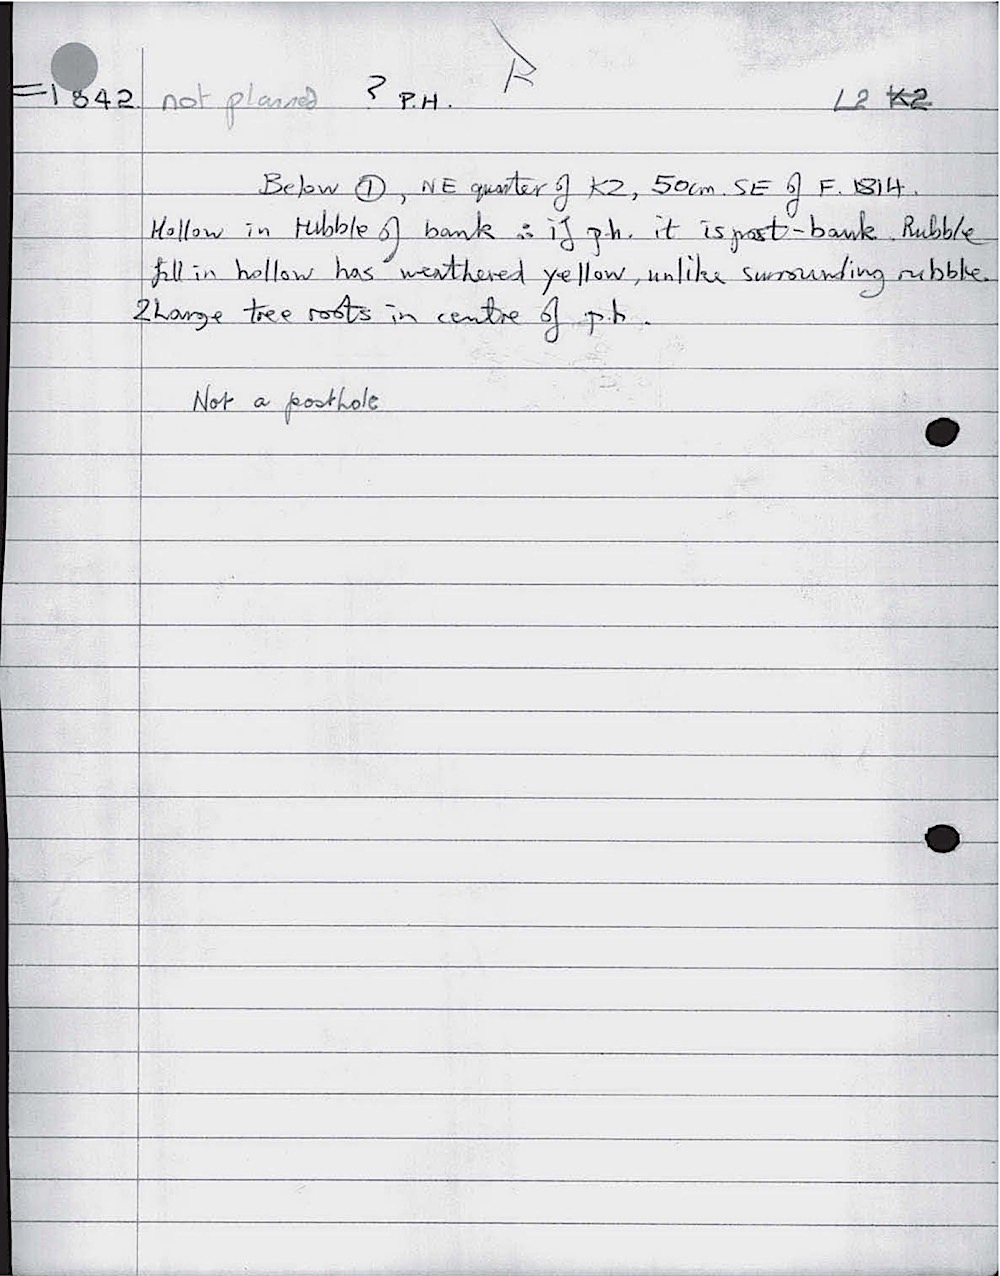 1842 not planned ? P.H. R L2 K2
Below ①, NE quarter of K2, 50cm. SE of F. 1814.
Hollow in rubble of bank ∴ if ph. it is post-bank. Rubble
fill in hollow has weathered yellow, unlike surrounding rubble.
2 large tree roots in centre of p.h.
Not a posthole